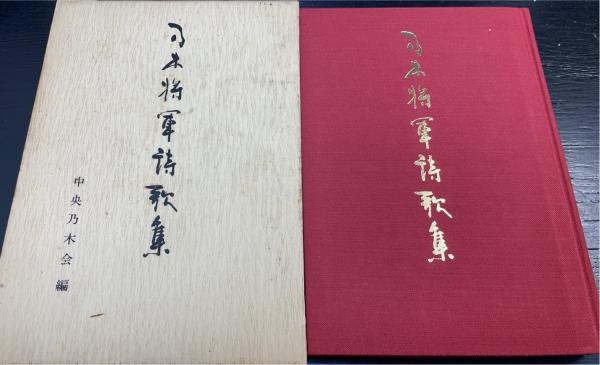 乃木将軍詩歌集
中央乃木会 編
乃木将軍詩歌集